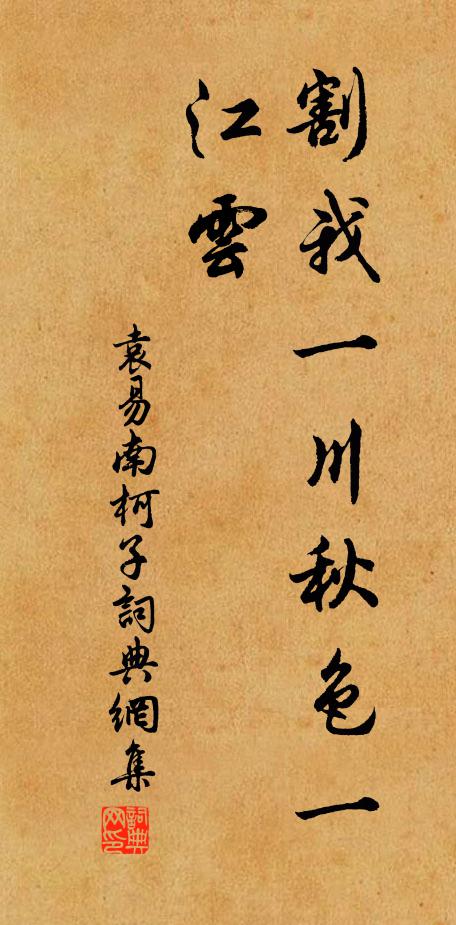 割我一川秋色一
江雲
袁易南柯子詞典網集
詞典网印